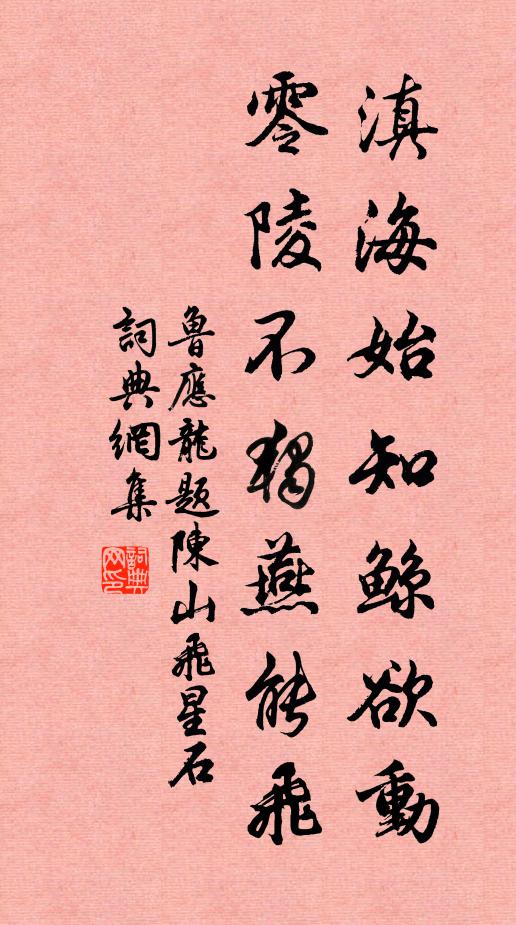 滇海始知鲸欲動
零陵不獨燕能飛
魯應龍題陳山飛星石
詞典網集
詞典網印